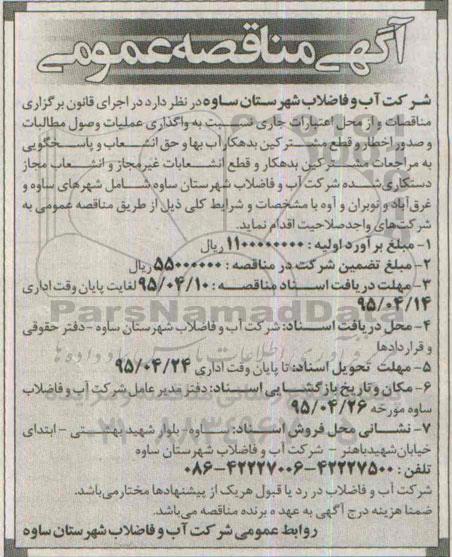 آگهی مناقصه عمومی
شرکت آب و فاضلاب شهرستان ساوه در نظر دارد در اجرای قانون برگزاری
مناقصات و از محل اعتبارات جاری نسبت به واگذاری عملیات وصول مطالبات
و صدور اخطار و قطع مشترکین بدهکار آب بها و حق انشعاب و پاسخگویی
به مراجعات مشترکین بدهکار و قطع انشعابات غیرمجاز و انشعاب مجاز
دستکاری شده شرکت آب و فاضلاب شهرستان ساوه شامل شهرهای ساوه و
غرق آباد و نوبران و آوه با مشخصات و شرایط کلی ذیل از طریق مناقصه عمومی به
شرکت‌های واجد صلاحیت اقدام نماید.
۱- مبلغ برآورد اولیه : ۱۱۰۰۰۰۰۰۰۰ ریال
۲- مبلغ تضمین شرکت در مناقصه : ۵۵۰۰۰۰۰۰ ریال
۳- مهلت دریافت اسناد مناقصه : ۹۵/۰۴/۱۰ لغایت پایان وقت اداری
۹۵/۰۴/۱۴
ParsNamadData
۴- محل دریافت اسناد: شرکت آب و فاضلاب شهرستان ساوه - دفتر حقوقی
و قراردادها
۵- مهلت تحویل اسناد: تا پایان وقت اداری ۹۵/۰۴/۲۴
۶- مکان و تاریخ بازگشایی اسناد: دفتر مدیر عامل شرکت آب و فاضلاب
ساوه مورخه ۹۵/۰۴/۲۶
۷- نشانی محل فروش اسناد: ساوه - بلوار شهید بهشتی - ابتدای
خیابان شهید باهنر - شرکت آب و فاضلاب شهرستان ساوه
تلفن : ۴۲۲۲۷۵۰۰-۴۲۲۲۷۰۰۶-۰۸۶
شرکت آب و فاضلاب در رد یا قبول هریک از پیشنهادها مختار می‌باشد.
ضمنا هزینه درج آگهی به عهده برنده مناقصه می‌باشد.
روابط عمومی شرکت آب و فاضلاب شهرستان ساوه